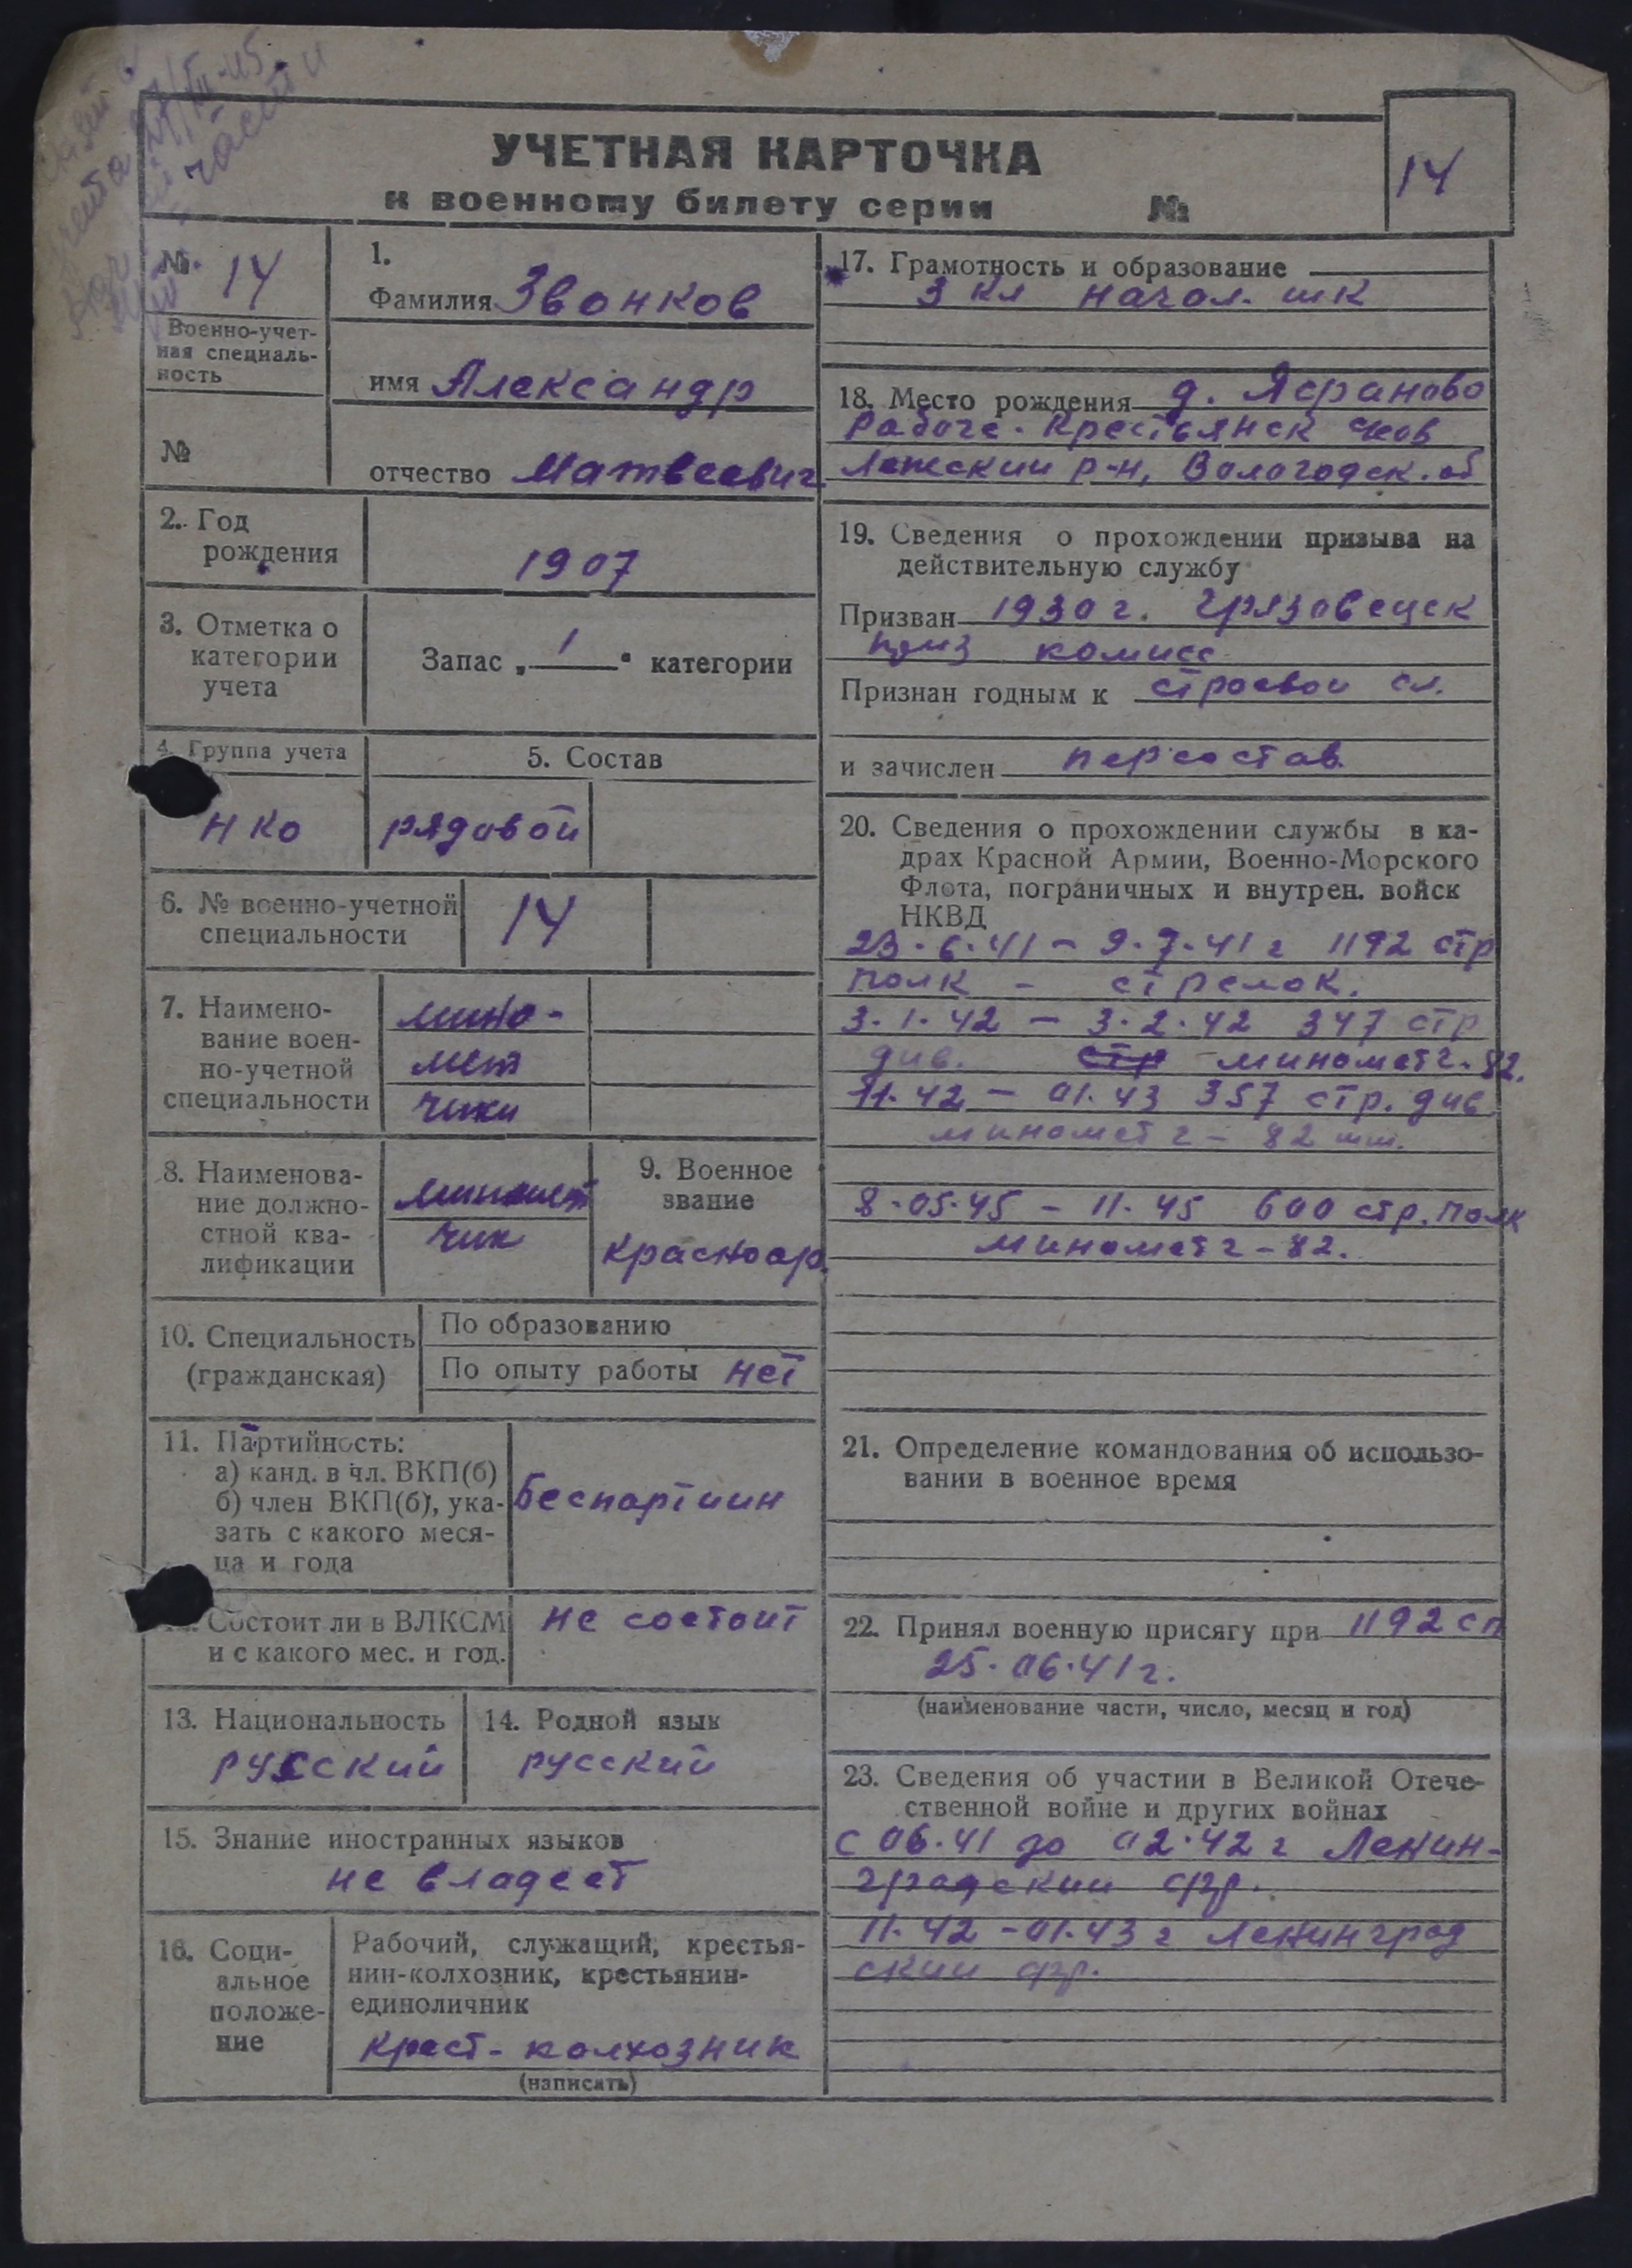 27/XII-45
части
УЧЕТНАЯ КАРТОЧКА
к военному билету серии №
14
№ 14
Военно-учет-
ная специаль-
ность
№
1.
Фамилия Звонков
имя Александр
отчество Матвеевич
2. Год
рождения
1907
3. Отметка о
категории
учета
Запас „ 1 " категории
4. Группа учета
НКО
5. Состав
рядовой
6. № военно-учетной
специальности
14
7. Наимено-
вание воен-
но-учетной
специальности
мино-
мет
чики
8. Наименова-
ние должно-
стной ква-
лификации
миномет
чик
9. Военное
звание
Красноар.
10. Специальность
(гражданская)
По образованию
По опыту работы нет
11. Партийность:
а) канд. в чл. ВКП(б)
б) член ВКП(б), ука-
зать с какого меся-
ца и года
Беспартиин
Состоит ли в ВЛКСМ
и с какого мес. и год.
не состоит
13. Национальность
русский
14. Родной язык
русский
15. Знание иностранных языков
не владеет
16. Соци-
альное
положе-
ние
Рабочий, служащий, крестья-
нин-колхозник, крестьянин-
единоличник
крест-колхозник
(написать)
17. Грамотность и образование
3 кл начал. шк
18. Место рождения д. Ясраново
Рабоче-Крестьянск
Лежский р-н, Вологодск. об
19. Сведения о прохождении призыва на
действительную службу
Призван 1930 г. Грязовецк
приз комисс
Признан годным к строевои сл.
и зачислен персостав
20. Сведения о прохождении службы в ка-
драх Красной Армии, Военно-Морского
Флота, пограничных и внутрен. войск
НКВД
23.6.41 - 9.7.41 г 1192 стр
полк - стрелок.
3.1.42 - 3.2.42 347 стр
див. стр минометч-82.
11.42 - 01.43 357 стр. див
минометч - 82 мм.
8.05.45 - 11.45 600 стр. полк
минометч - 82.
21. Определение командования об использо-
вании в военное время
22. Принял военную присягу при 1192 сп
25.06.41 г.
(наименование части, число, месяц и год)
23. Сведения об участии в Великой Отече-
ственной войне и других войнах
с 06.41 до 02.42 г Ленин-
градский фр.
11.42 - 01.43 г Ленинград
ский фр.